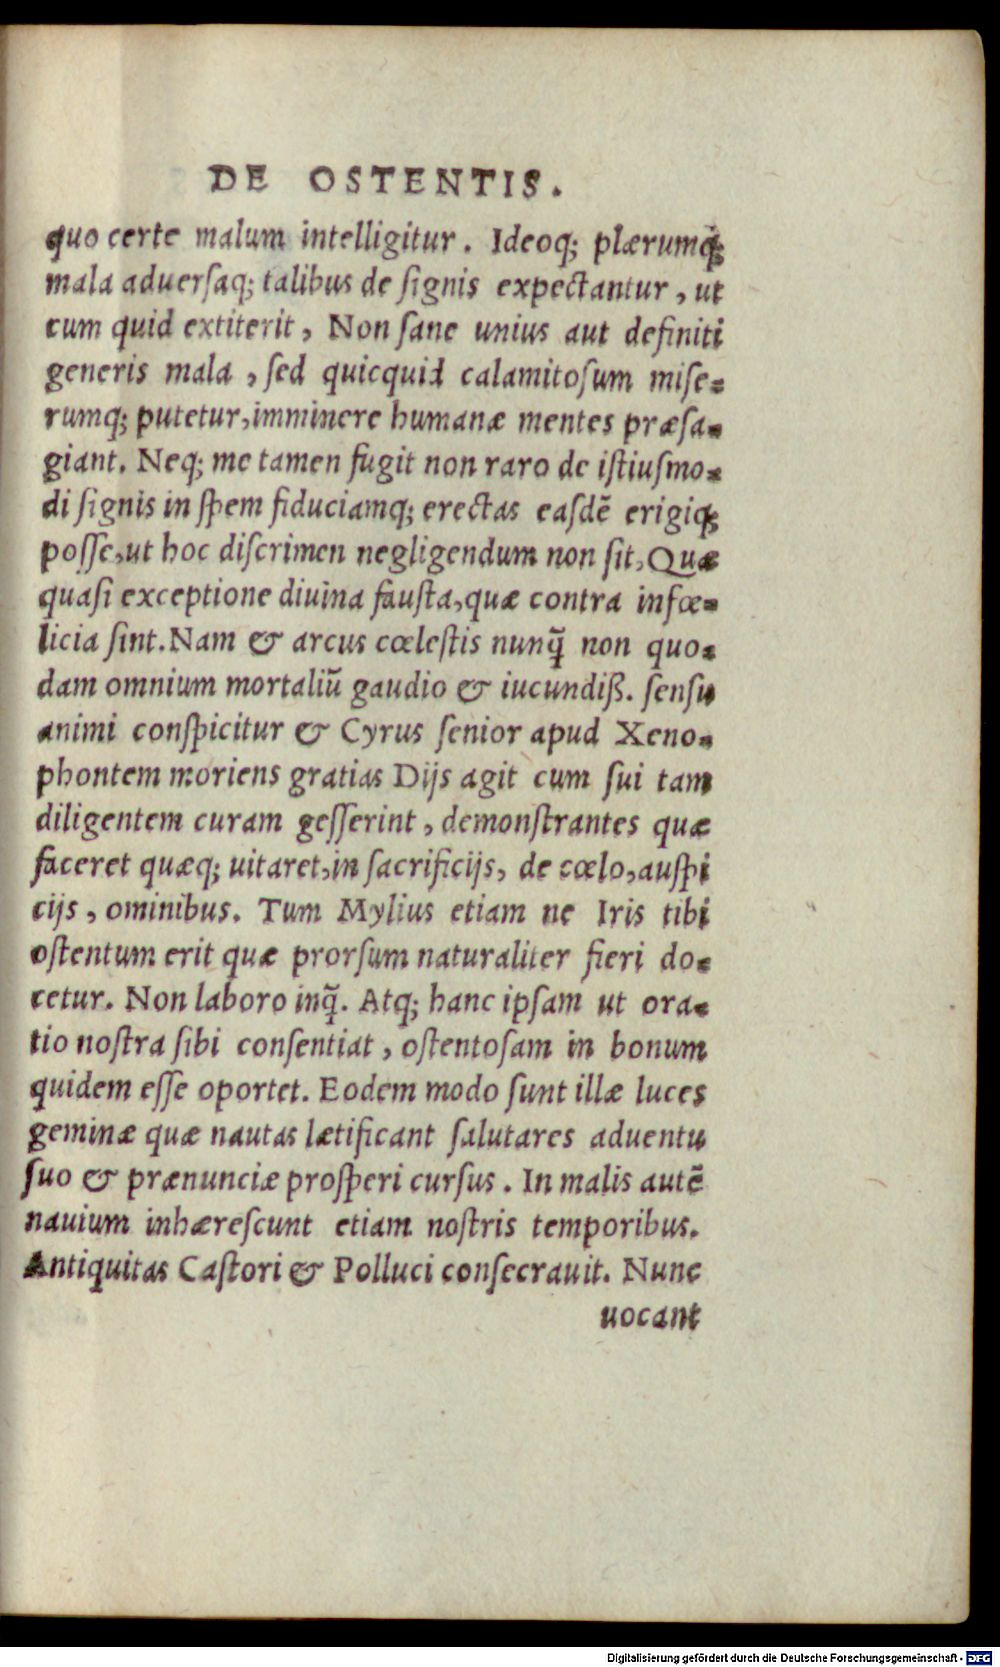 DE OSTENTIS.
quo certe malum intelligitur. Ideoq; plærumq̃;
mala aduerſaq; talibus de ſignis expectantur, ut
cum quid extiterit, Non ſane unius aut definiti
generis mala, ſed quicquid calamitoſum miſe-
rumq; putetur, imminere humanæ mentes præſa-
giant. Neq; me tamen fugit non raro de iſtiuſmo-
di ſignis in ſpem fiduciamq; erectas eaſdẽ erigiq;
poſſe, ut hoc diſcrimen negligendum non ſit, Quæ
quaſi exceptione diuina fauſta, quæ contra infœ-
licia ſint. Nam & arcus cœleſtis nunq̃ non quo-
dam omnium mortaliũ gaudio & iucundiß. ſenſu
animi conſpicitur & Cyrus ſenior apud Xeno-
phontem moriens gratias Dijs agit cum ſui tam
diligentem curam geſſerint, demonſtrantes quæ
faceret quæq; uitaret, in ſacrificijs, de cœlo, auſpi
cijs, ominibus. Tum Mylius etiam ne Iris tibi
oſtentum erit quæ prorſum naturaliter fieri do-
cetur. Non laboro inq̃. Atq; hanc ipſam ut ora-
tio noſtra ſibi conſentiat, oſtentoſam in bonum
quidem eſſe oportet. Eodem modo ſunt illæ luces
geminæ quæ nautas lætificant ſalutares aduentu
ſuo & prænunciæ proſperi curſus. In malis autẽ
nauium inhæreſcunt etiam noſtris temporibus.
Antiquitas Caſtori & Polluci conſecrauit. Nunc
uocant
Digitalisierung gefördert durch die Deutsche Forschungsgemeinschaft - DFG